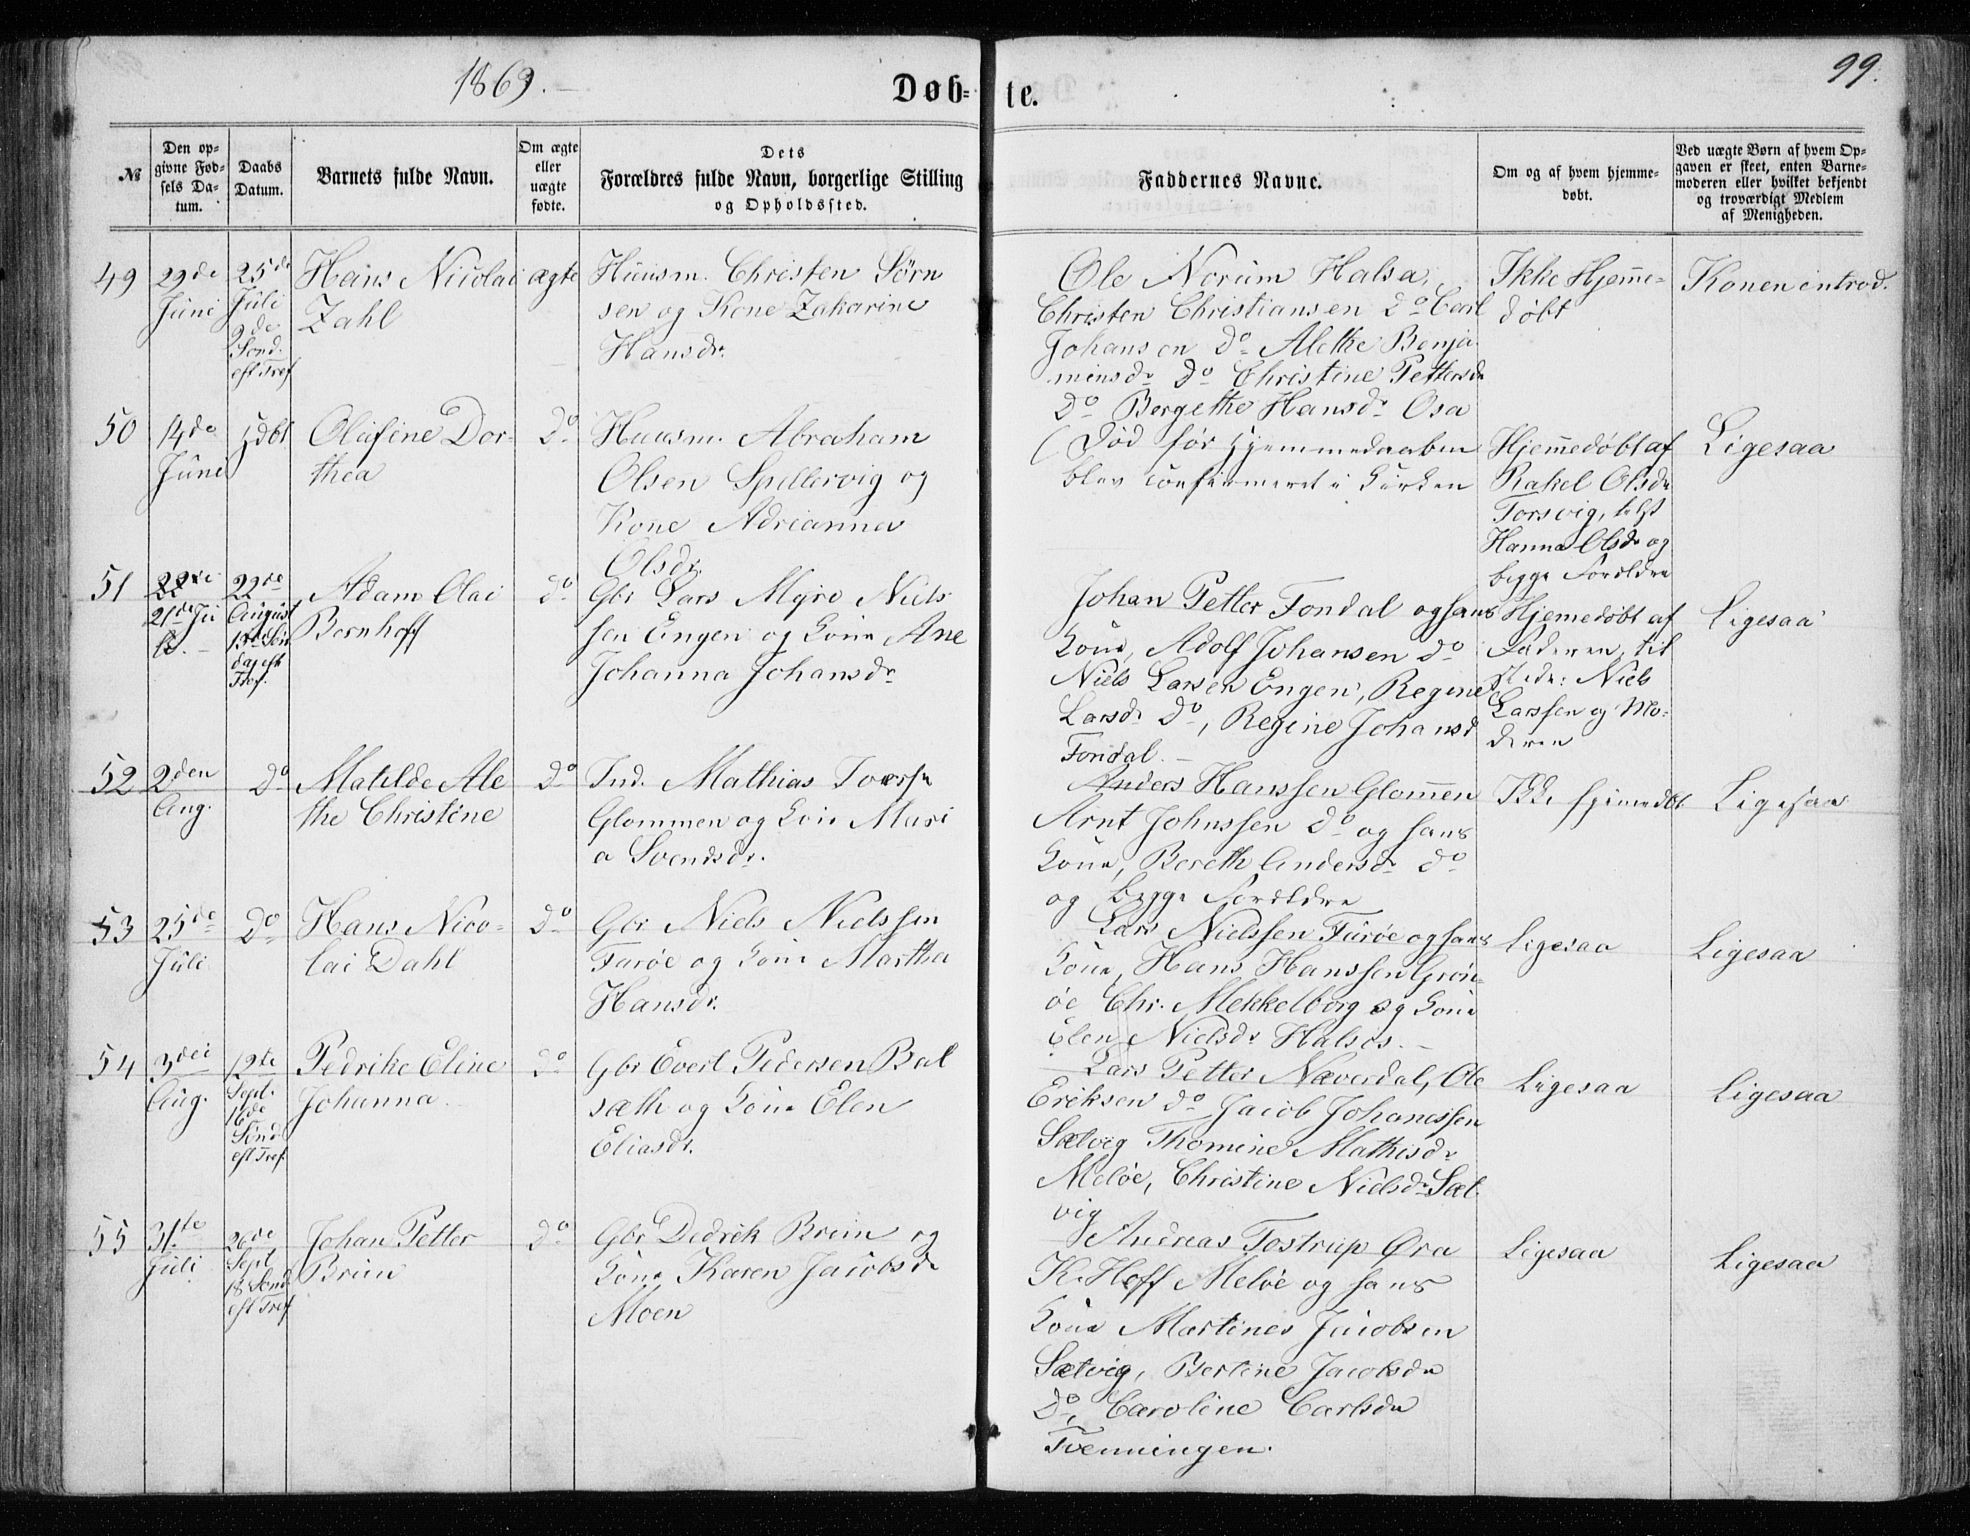 1869.
99.
Døb-
te.
№
Den op-
givne Fød-
sels Da-
tum.
Daabs
Datum.
Barnets fulde Navn.
Om ægte
eller
uægte
fødte.
Dets
Forældres fulde Navn, borgerlige Stilling
og Opholdssted.
Faddernes Navne.
Om og af hvem hjemme-
døbt.
Ved uægte Børn af hvem Op-
gaven er skeet, enten Barne-
moderen eller hvilket bekjendt
og troværdigt Medlem
af Menigheden.
49
29de
Juni
25de
Juli
9de
Sønd.
eft Tref
Hans Nicolai
Zahl
ægte
Huusm. Christen Sørn
sen og Kone Zakarine
Hansdr.
Ole Norum Halsa,
Christen Christiansen do Carl
Johansen do Alethe Benja
minsdr do Christine Pettersdr
do Bergethe Hansdr Osa
Ikke Hjemme-
døbt
Konen introd.
50
14de
Juni
hjdbt
Olufine Dor-
thea
do
Huusm. Abraham
Olsen Spillervig og
Kone Adrianna
Olsdr.
(Død før Hjemmedaaben
blev confirmeret i Kirken
Hjemmedøbt af
Rakel Olsdr
Torsvig,
Hanna Olsdr og
begge Forældre
Ligesaa
51
21de Ju
li.
22de
August
13de Søn
dag eft
Tref.
Adam Olai
Bernhoff
do
Gbr Lars Myro Niels
sen Engen og Kone Ane
Johanna Johansdr
Johan Petter Fondal og hans
Kone, Adolf Johansen do
Niels Larsen Engen, Regine
Larsdr do, Regine Johansd
Fondal.
Hjemedøbt af
Faderen, til
stede: Niels
Larssen og Mo-
deren
Ligesaa
52
2den
Aug.
do
Matilde Ale
the Christine
do
Ind. Mathias Toersn
Glommen og Kone Mari
a Svendsdr.
Anders Hanssen Glommen
Arnt Johnssen do og hans
Kone, Bereth Andersdr do
og begge Forældre
Ikke hjemmedbt
Ligesaa
53
25de
Juli
do
Hans Nico-
lai Dahl
do
Gbr Niels Nielssen
Furøe og Kone Martha
Hansdr.
Lars Nielssen Furøe og hans
Kone, Hans Hanssen Grøn-
øe Chr. Mekkelborg og Kone
Elen Nielsdr Halsos.
Ligesaa
Ligesaa
54
3die
Aug.
12te
Sept.
16de
Sønd
eft Tref.
Pedrike Eline
Johanna.
do
Gbr Evert Pedersen Bal
sæth og Kone Elen
Eliasdr.
Lars Petter Næverdal, Ole
Eriksen do Jacob Johanessen
Sætvig Thomine Mathisdr
Meløe, Christine Nielsdr Sæt
vig
Ligesaa
Ligesaa
55
31te
Juli
26de
Sept
18 Sønd
eft Tref
Johan Petter
Brun
do
Gbr Dedrik Breun og
Kone Karen Jacobsdr
Moen
Andreas Tostrup Øra
K. Hoff Meløe og hans
Kone Martines Jacobsen
Sætvig, Berline Jacobsdr
do, Caroline Carlsdr
Tvenningen.
Ligesaa
Ligesaa